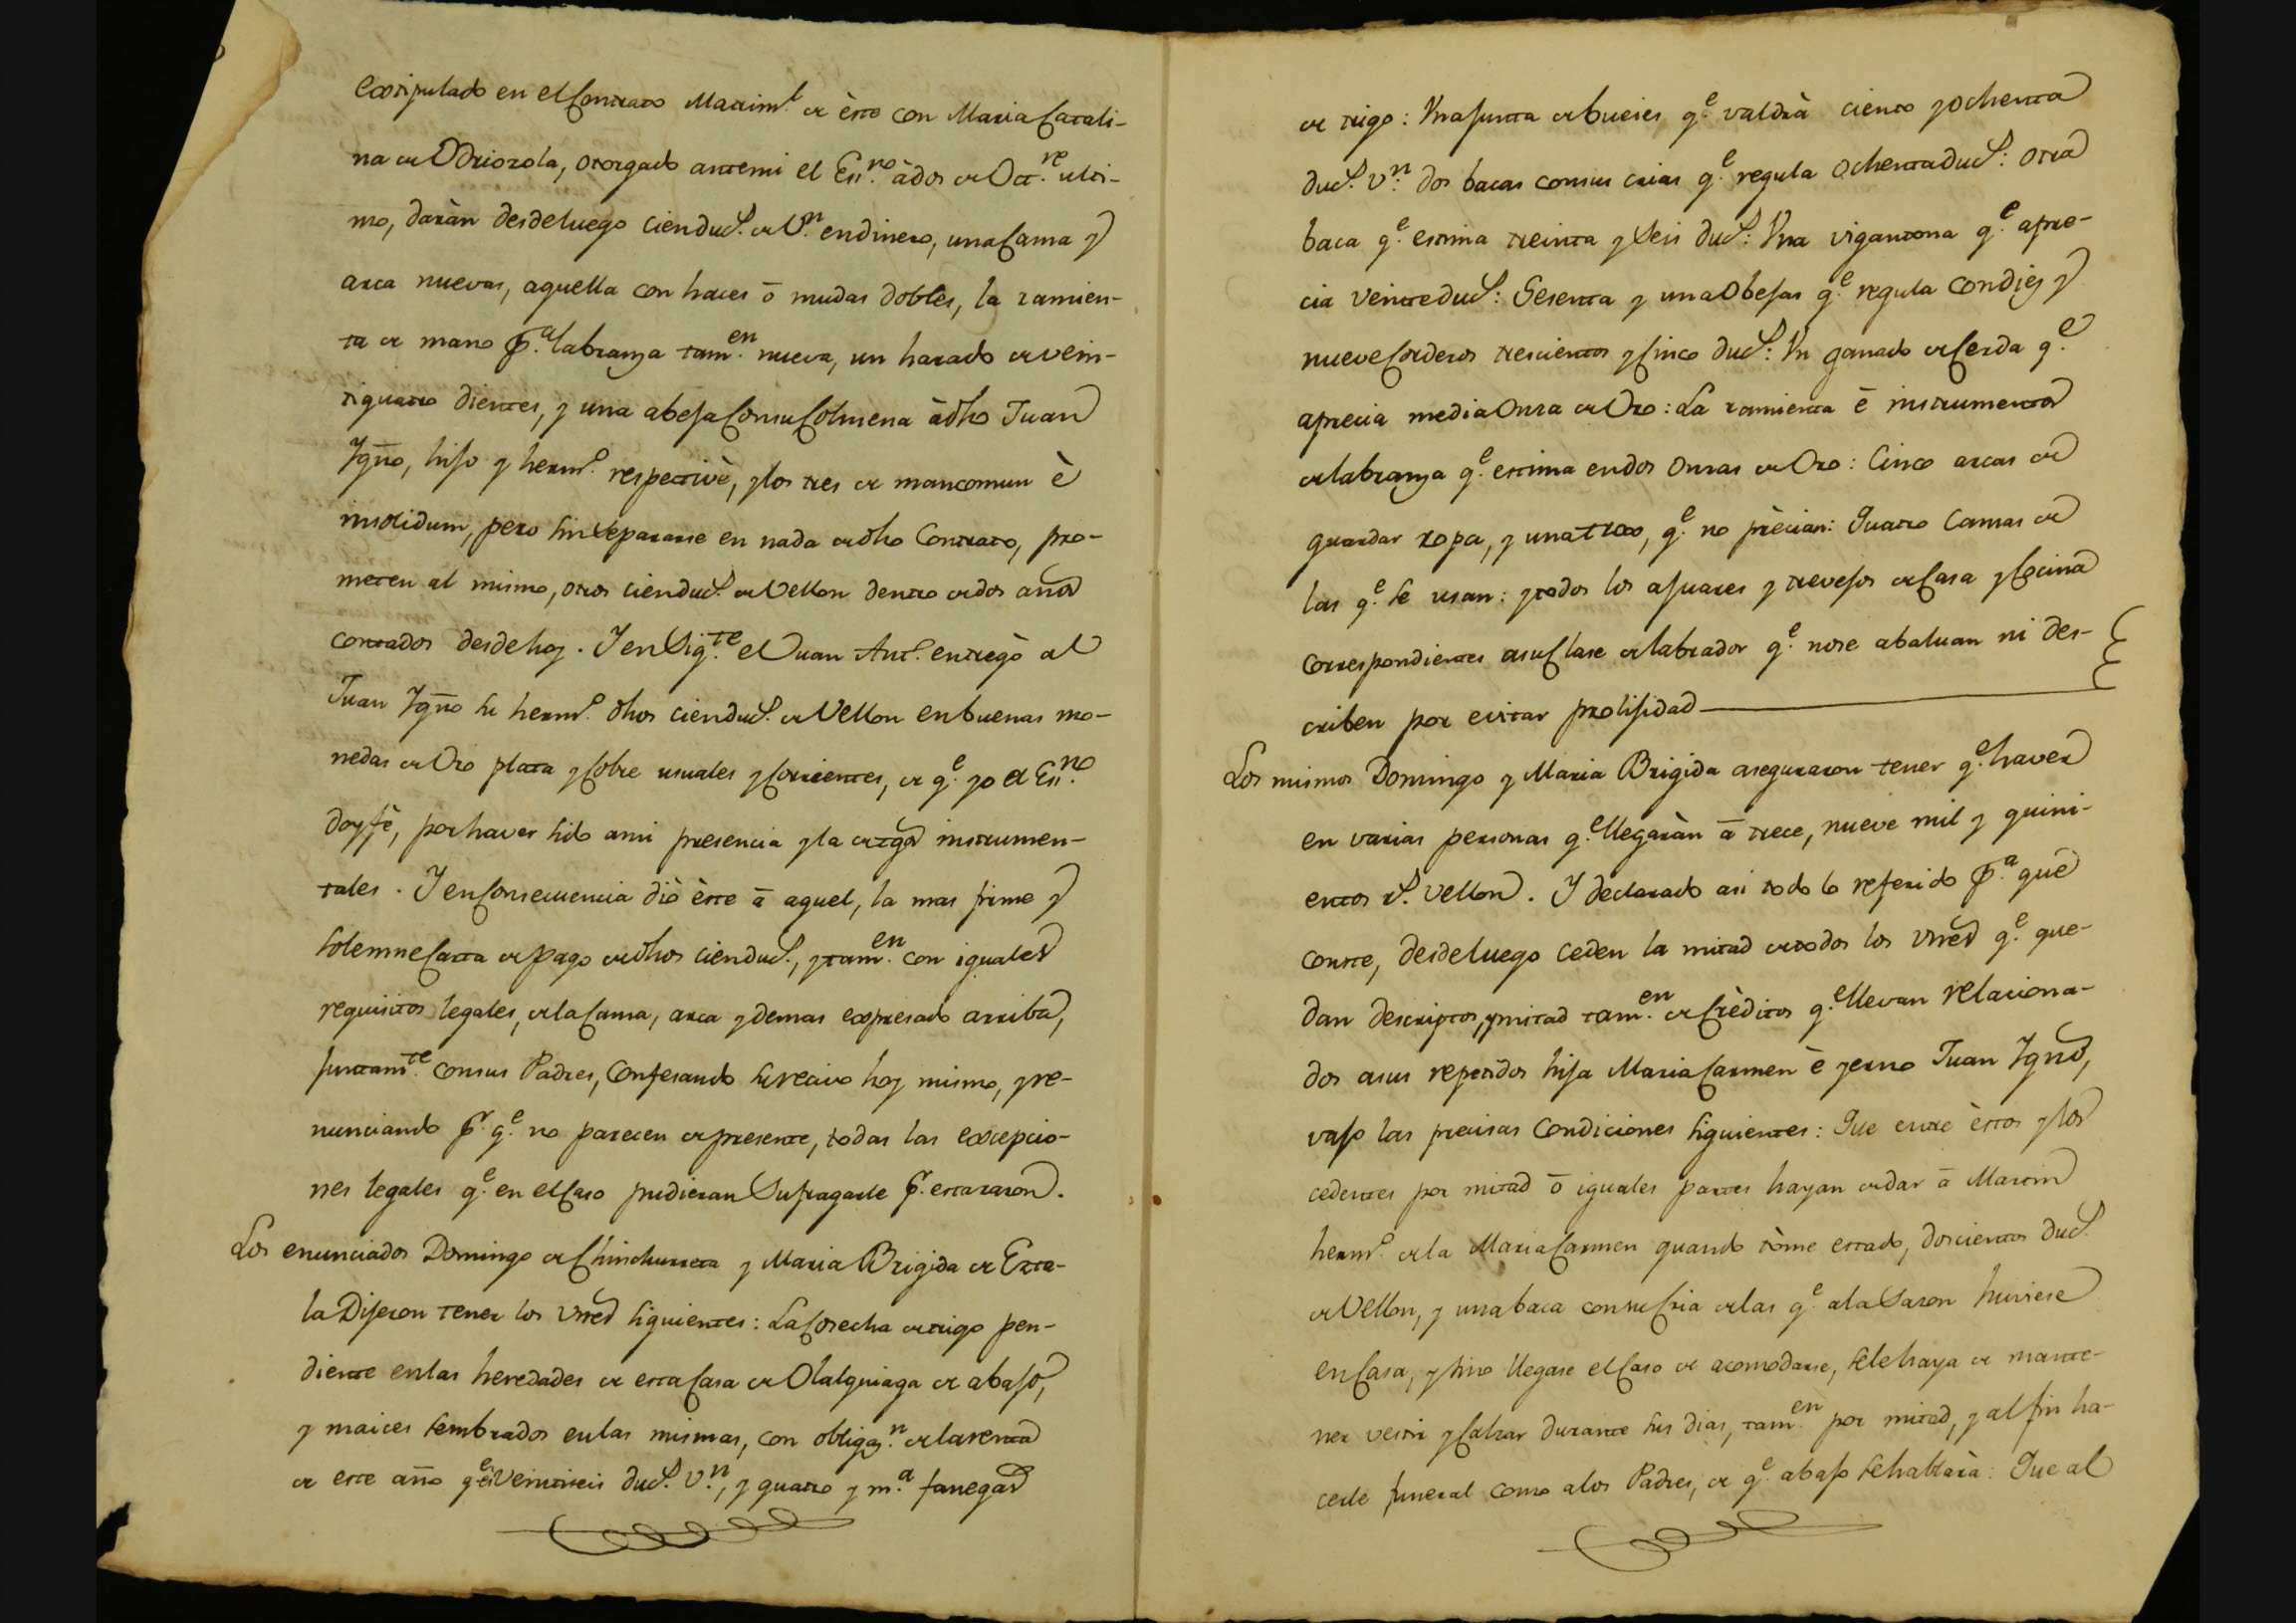 extipulado en el Contrato Matrim.l de èste con Maria Catali-
na de Odriozola, otorgado antemi el Ess.no à dos de Oct.re ulti-
mo, daràn desdeluego cien duc.s de V.n en dinero, una Cama y
arca nuevas, aquella con haces ô mudas dobles, la ramien-
ta de mano p.a labranza tam.en nueva, un harado de vein-
tiquatro dientes, y una abeja Consu Colmena àdho Juan
Ygn̄o, hijo y herm.o respectivè, y los tres de mancomun è
insolidum, pero sin separarse en nada de dho Contrato, pro-
meten al mismo, otros cien duc.s de Vellon dentro de dos años
contados desde hoy. Y en Sig.te el Juan Ant.o entregò al
Juan Ygn̄o su herm.o dhos cien duc.s de Vellon en buenas mo-
nedas de Oro plata y Cobre usuales y Corrientes, de q.e yo el Ess.no
doy fè, por haver sido a mi presencia y la de tgos instrumen-
tales. Y en Consecuencia diò èste â aquel, la mas firme y
solemne Carta de pago de dhos cien duc.s, y tam.en con iguales
requisitos legales, de la Cama, arca y demas expresado arriba,
juntam.te consus Padres, Confesando su recivo hoy mismo, y re-
nunciando p.r q.e no parecen de presente, todas las excepcio-
nes legales q.e en el Caso pudieran Sufragarle p.r esta razon.
Los enunciados Domingo de Chinchurreta y Maria Brigida de Ezta-
la Dijeron tener los vnes siguientes: La Cosecha de trigo pen-
diente en las heredades de esta Casa de Olalquiaga de abajo,
y maices sembrados en las mismas, con obligaz.n de la renta
de este año q.e es Veintiseis duc.s V.n, y quatro y m.a fanegas
de trigo: Una junta de bueies q.e valdrà ciento y ochenta
duc.s V.n: dos bacas consus crias q.e regula Ochenta duc.s: otra
baca q.e estima treinta y seis duc.s: Una vigantona q.e apre-
cia veinte duc.s: Sesenta y una Obejas q.e regula con diez y
nueve Corderos trescientos y Cinco duc.s: Un ganado de Cerda q.e
aprecia media Onza de Oro: La ramienta ê instrumentos
de labranza q.e estima en dos Onzas de Oro: Cinco arcas de
guardar ropa, y una troxo, q.e no prècian: Quatro Camas de
las q.e se usan: y todos los ajuares y trevejos de Casa y Cocina
correspondientes asu Clase de labrador q.e nose abaluan ni des-
criben por evitar prolijidad
Los mismos Domingo y Maria Brigida aseguraron tener q.e haver
en varias personas q.e llegaràn â trece, nueve mil y quini-
entos r.s vellon. Y declarado asi todo lo referido p.a que
conste, desdeluego ceden la mitad de todos los vnes q.e que-
dan descriptos, y mitad tam.en de Crèditos q.e llevan relaciona-
dos asus repetidos hija Maria Carmen è yerno Juan Ygn̄o,
vajo las precisas Condiciones siguientes: Que entre èstos y los
cedentes por mitad ô iguales partes hayan de dar â Martin
herm.o de la Maria Carmen quando tòme estado, doscientos duc.s
de Vellon, y una baca consu Cria de las q.e ala Sazon huviese
en Casa, y sino llegase el Caso de acomodarse, sele haya de mante-
ner vestir y Calzar durante sus dias, tam.en por mitad, y al fin ha-
cerle funeral como alos Padres, de q.e abajo se hablarà: Que al